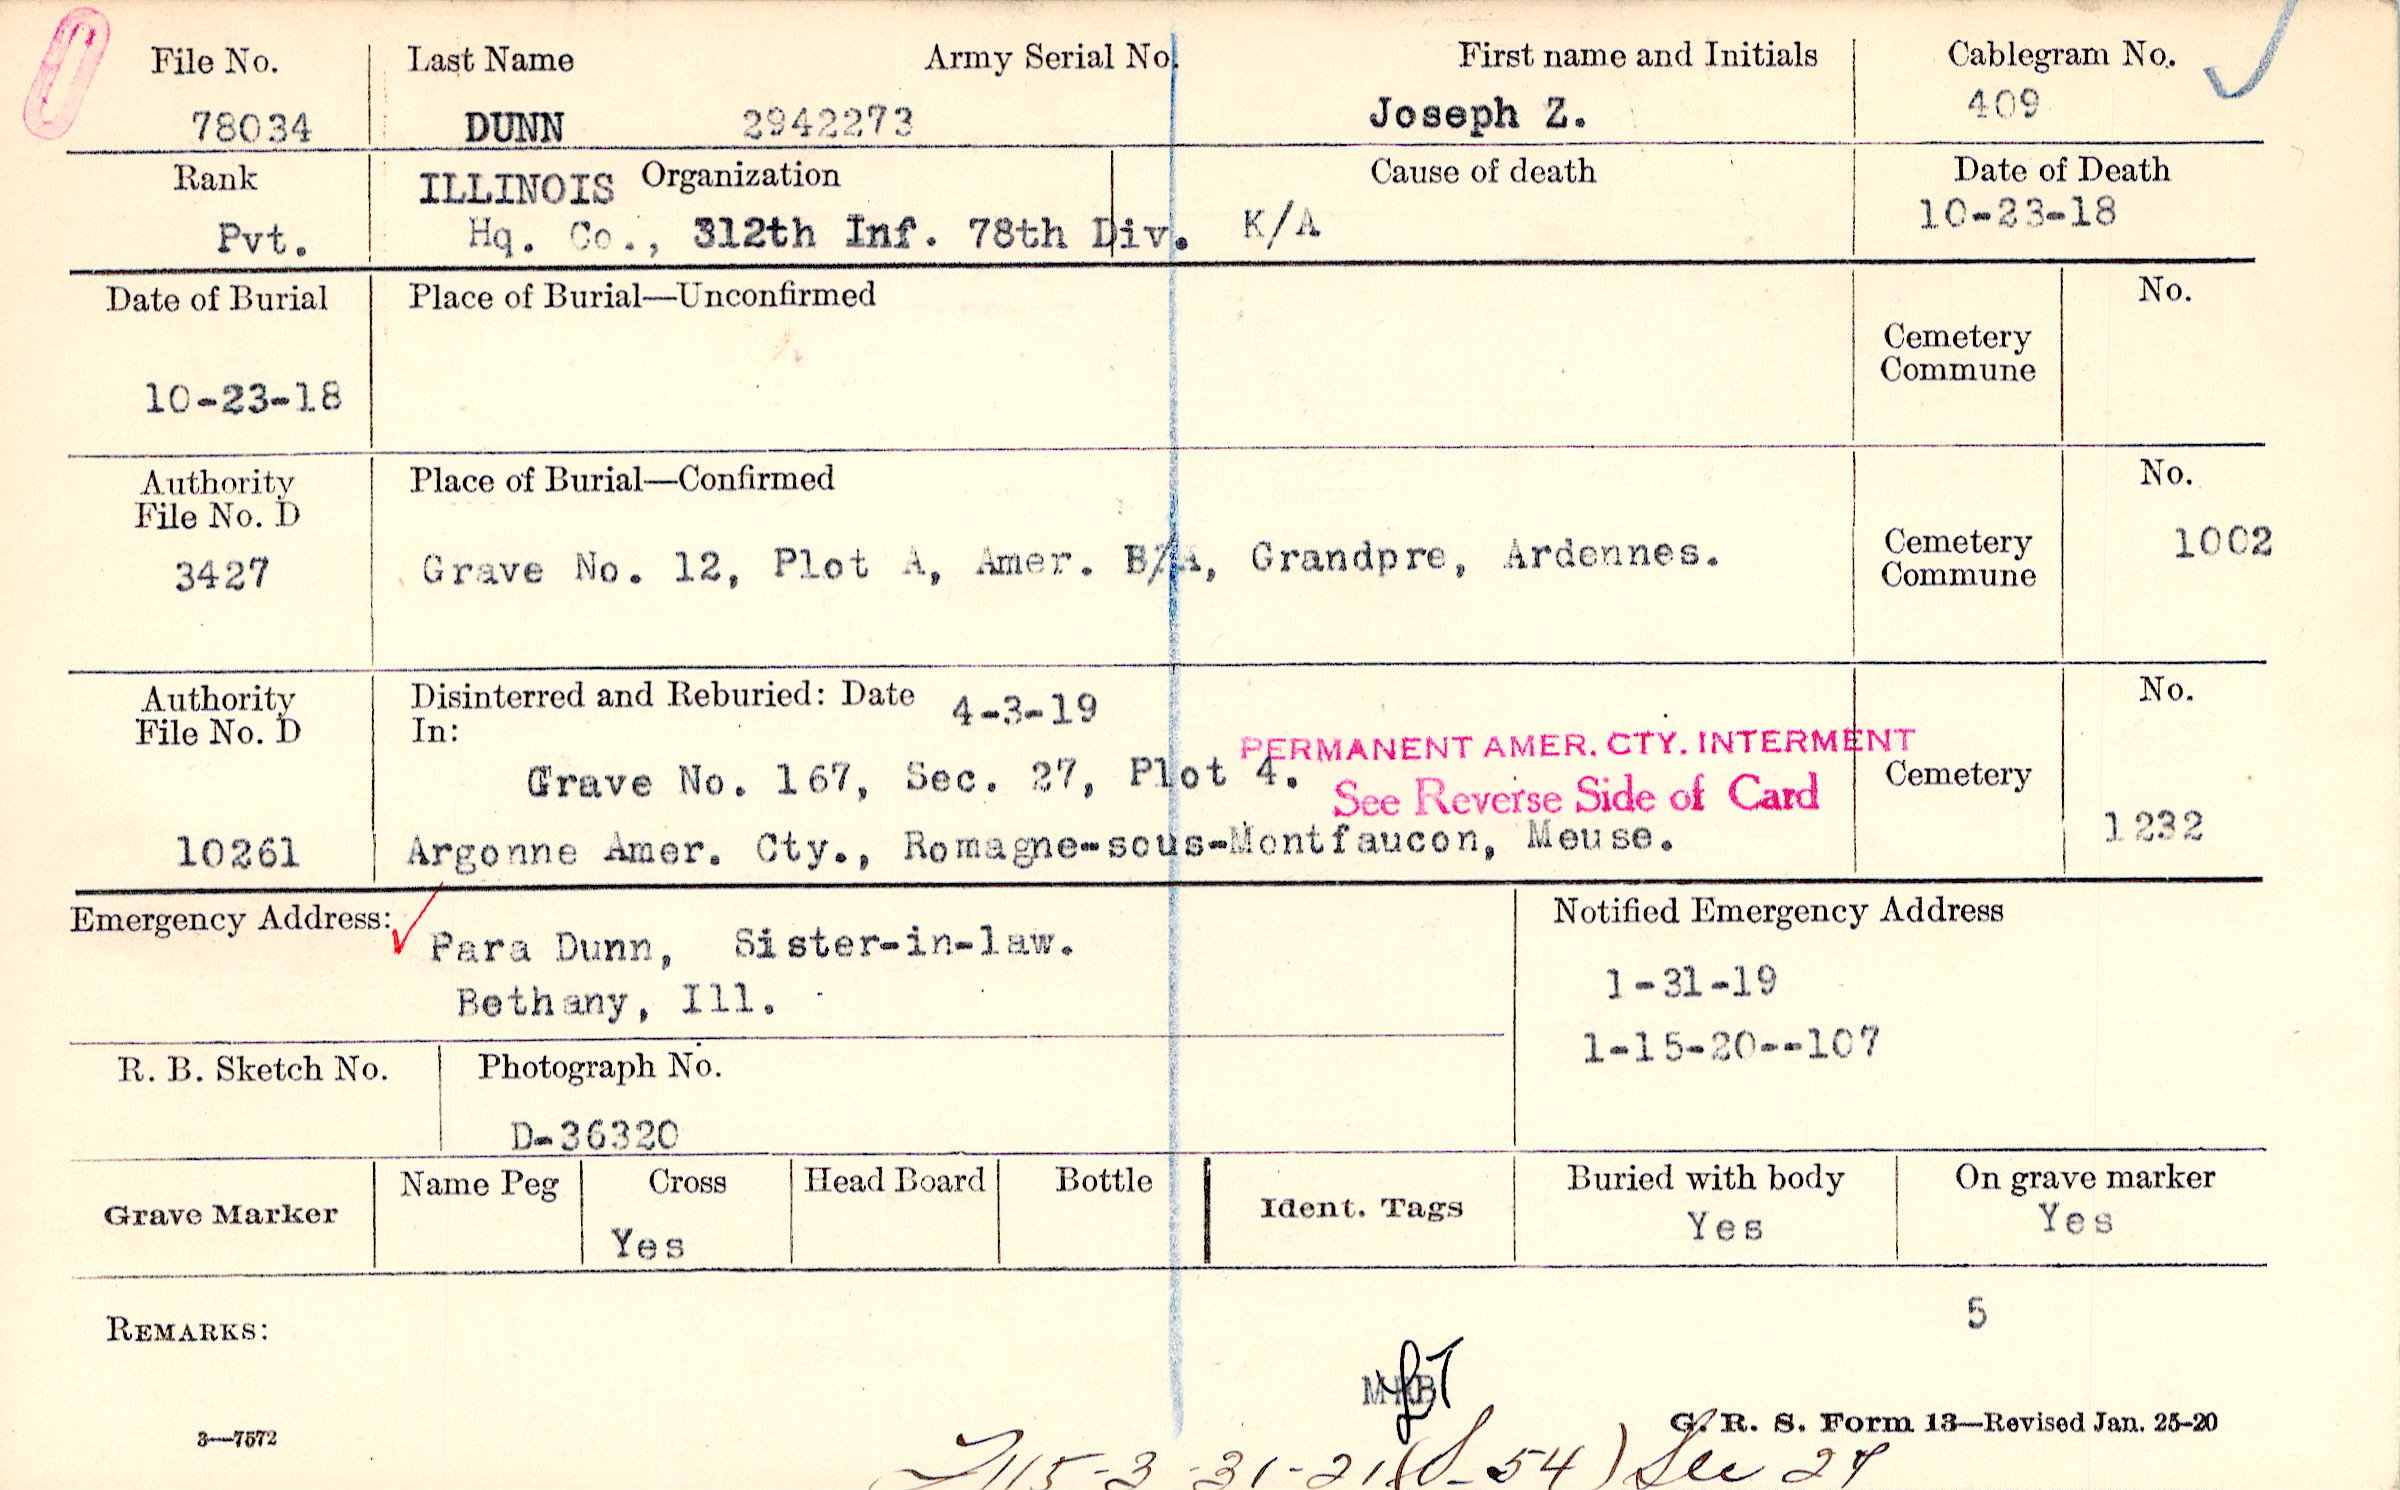 File No. Last Name Army Serial No. First name and Initials Cablegram No.
78034 DUNN 2942273 Joseph Z. 409
Rank ILLINOIS Organization Cause of death Date of Death
Pvt. Hq. Co., 312th Inf. 78th Div. K/A 10-23-18
Date of Burial Place of Burial—Unconfirmed No.
Cemetery
Commune
10-23-18
Authority Place of Burial—Confirmed No.
File No. D
3427 Grave No. 12, Plot A, Amer. B/A, Grandpre, Ardennes. Cemetery 1002
Commune
Authority Disinterred and Reburied: Date 4-3-19 No.
File No. D In:
PERMANENT AMER. CTY. INTERMENT
Grave No. 167, Sec. 27, Plot 4. Cemetery
See Reverse Side of Card
10261 Argonne Amer. Cty., Romagne-sous-Montfaucon, Meuse. 1232
Emergency Address: Notified Emergency Address
Para Dunn, Sister-in-law.
1-31-19
Bethany, Ill.
1-15-20--107
R. B. Sketch No. Photograph No.
D-36320
Grave Marker Name Peg Cross Head Board Bottle Ident. Tags Buried with body On grave marker
Yes Yes Yes
5
REMARKS:
3—7572 G. R. S. Form 13—Revised Jan. 25-20
3-31-21 (S-54) Sec 27